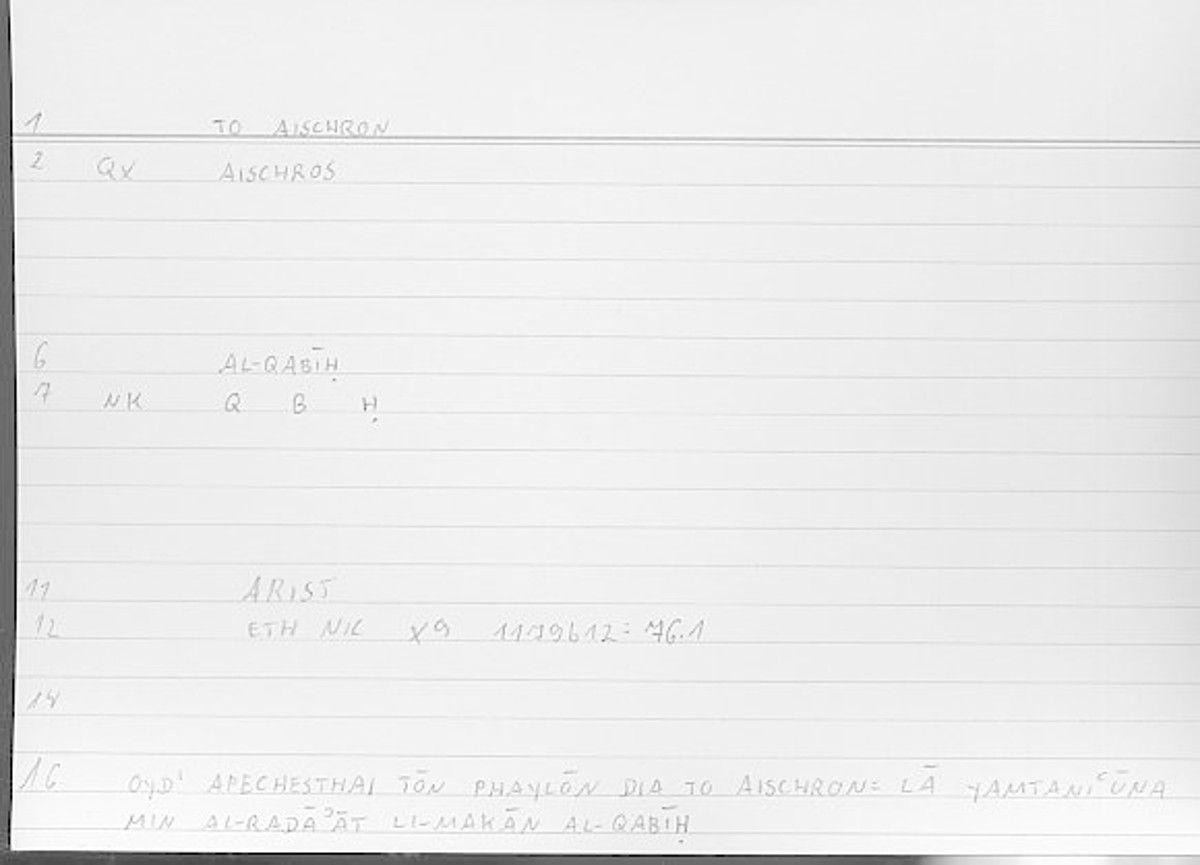 1 TO AISCHRON
2 QX AISCHROS
6 AL-QABĪḤ
7 NK Q B Ḥ
11 ARIST
12 ETH NIC X9 1179b12= 76.1
14
16 OYD' APECHESTHAI TŌN PHAYLŌN DIA TO AISCHRON= LĀ YAMTANIʿŪNA
MIN AL-RADĀʾĀT LI-MAKĀN AL-QABĪḤ